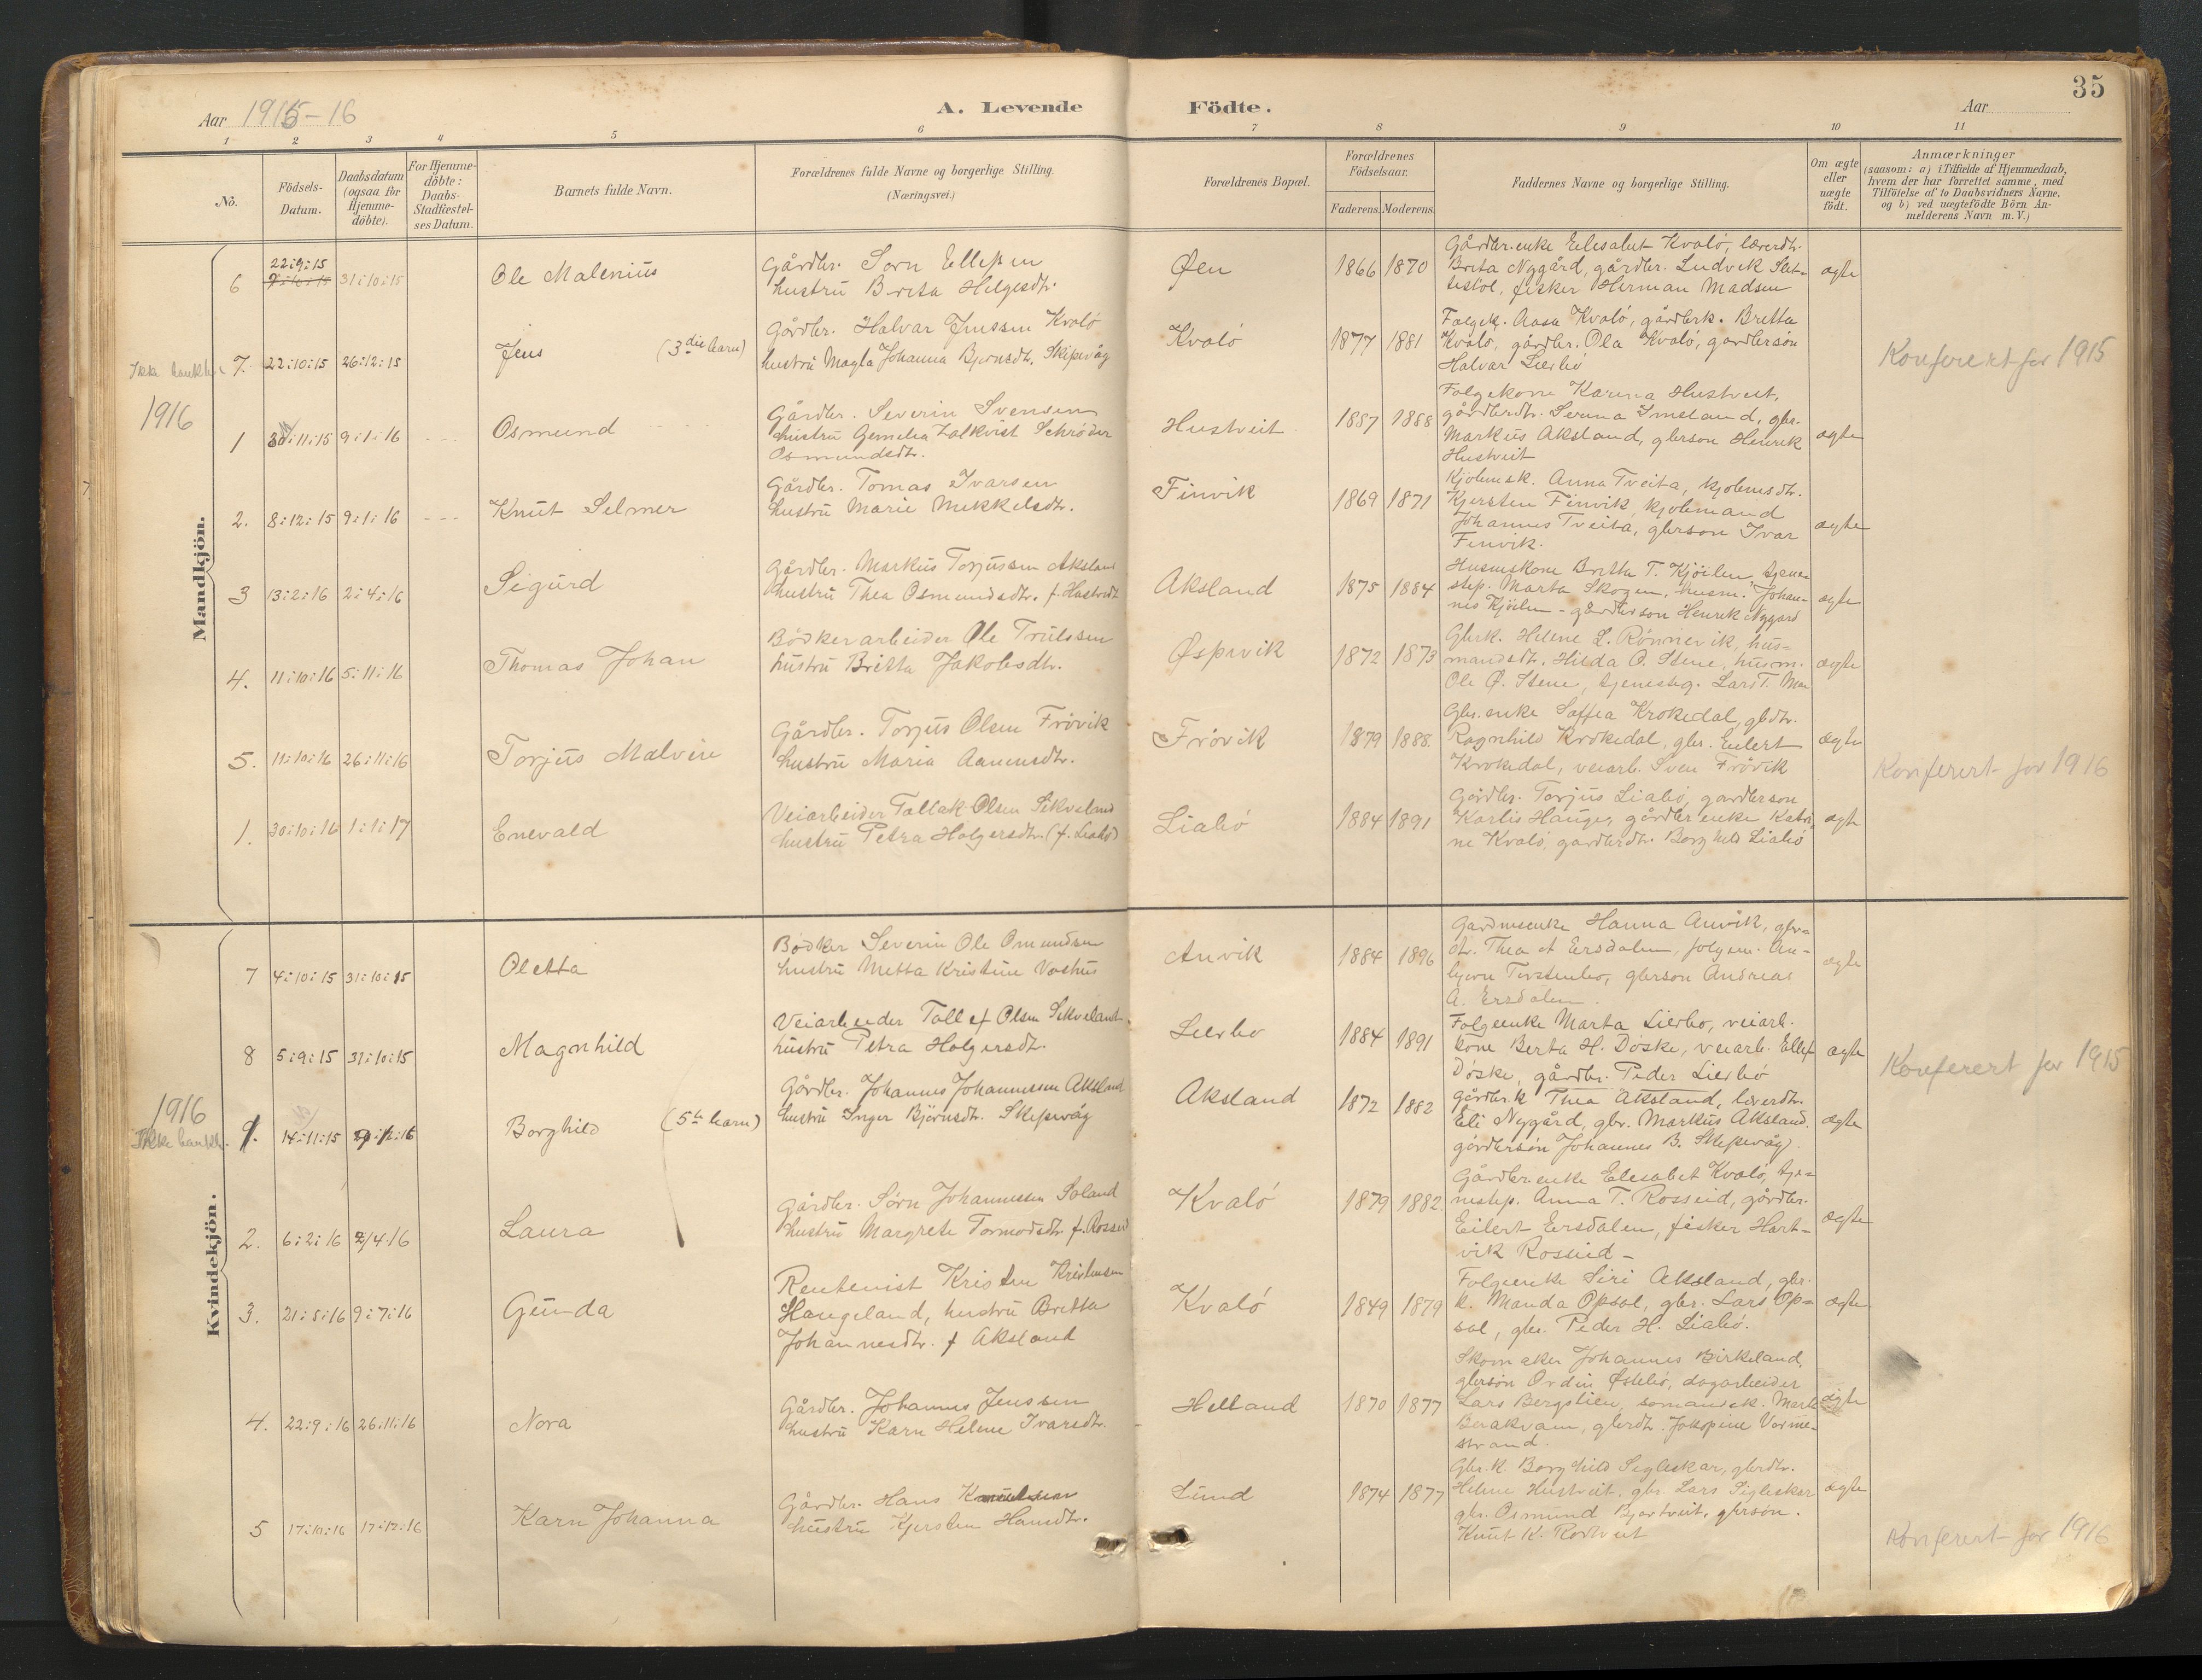 35
Aar 1915-16
A. Levende Födte.
Aar
1 2 3 4 5 6 7 8 9 10 11
No.
Födsels-
Datum.
Daabsdatum
(ogsaa for
Hjemme-
döbte).
For Hjemme-
döbte:
Daabs-
Stadfæstel-
ses Datum.
Barnets fulde Navn.
Forældrenes fulde Navne og borgerlige Stilling.
(Næringsvei.)
Forældrenes Bopæl.
Forældrenes
Födselsaar.
Faderens. Moderens.
Faddernes Navne og borgerlige Stilling.
Om ægte
eller
uægte
födt.
Anmærkninger
(saasom: a) i Tilfælde af Hjemmedaab,
hvem der har forrettet samme, med
Tilföielse af to Daabsvidners Navne.
og b) ved uægtefödte Börn An-
melderens Navn m.V.)
Mandkjön.
6 22:9:15 31:10:15 Ole Malenius
Gårdbr. Sørn Ellefsen
hustru Brita Helgesdtr.
Øen 1866 1870
Gårdbr.enke Elesabet Kvalö, lærerdtr.
Brita Nygård, gårdbr. Ludvik Slet-
testöl, fisker Herman Madsen
ægte
7. 22:10:15 26:12:15 Jens (3die barn)
Gårdbr. Halvar Jenssen Kvalö
hustru Magla Johanna Bjørnsdtr. Skipevåg
Kvalö 1877 1881
Folgek. Aasa Kvalö, gårdbrk. Britta
Kvalö, gårdbr. Ola Kvalö, gardbrsön
Halvar Lierbö
Konferert for 1915
1916
1 30:11:15 9:1:16 Osmund
Gårdbr. Severin Svensen
hustru Gemelia Zalkvist Schröder
Osmundsdtr.
Hustveit 1887 1888
Folgekone Karina Hustveit,
gårdbrdtr. Serina Imeland, gbr.
Markus Aksland, gbrson Henrik
Hustveit
ægte
2. 8:12:15 9:1:16 Knut Selmer
Gårdbr. Tomas Ivarsen
hustru Marie Mikkelsdtr.
Finvik 1869 1871
Kjölemsk. Anna Tveita, kjolemsdtr.
Kjersten Finvik, kjolemand
Johannes Tveita, gbrson Ivar
Finvik.
ægte
3 13:2:16 2:4:16 Sigurd
Gårdbr. Markus Torjussen Aksland
hustru Thea Osmundsdtr. f. Hustveit
Aksland 1875 1884
Husmskone Britha T. Kjöilen, tjene-
step. Marta Skogen, husm. Johan-
nes Kjöilen - gårdbrson Henrik Nygård
ægte
4. 11:10:16 5:11:16 Thomas Johan
Bödkerarbeider Ole Trulssen
hustru Britta Jakobsdtr.
Øspevik 1872 1873
Gbrk. Helene L. Rönnevik, hus-
mandsdtr. Hilda O. Stene, husm.
Ole Ø. Stene, tjenesteg. Lars T. Moe
ægte
5. 11:10:16 26:11:16 Torjus Malvin
Gårdbr. Torjus Olsen Frövik
hustru Maria Aanensdtr.
Frövik 1879 1888.
Gbr.enke Soffia Krokedal, gbdtr.
Ragnhild Krokedal, gbr. Eilert
Krokedal, veiarb. Sven Frövik
ægte
Konferert for 1916
1. 30:10:16 1:1:17 Enevald
Veiarbeider Tallak Olsen Sekveland
hustru Petra Holgersdtr. (f. Liabö)
Liabö 1884 1891
Gårdbr. Torjus Liabö, gardbrson
Karlis Hauge, gårdbrenke Katri-
ne Kvalö, gardbrdtr. Borghild Liabö
ægte
Kvindekjön.
7 4:10:15 31:10:15 Oletta
Bödker Severin Ole Omundsen
hustru Metta Kristine
Anvik 1884 1896
Gardmsenke Hanna Anvik, gbr-
dtr. Thea A Ersdalen, folgem. An-
bjørn Tveitebö, gbrson Andreas
A. Ersdalen.
ægte
8 5:9:15 31:10:15 Magnhild
Veiarbeider Tollef Olsen Sekveland
hustru Petra Holgersdtr.
Lierbo 1884 1891
Folgeenke Marta Lierbo, veiarb.
kone Berta H. Döske, veiarb. Ellef
Döske, gårdbr. Peder Lierbö
ægte
Konferert for 1915
1916
14:11:15 Borghild (5te barn)
Gårdbr. Johannes Johannessen Aksland
hustru Inger Björnsdtr. Skipevåg
Aksland 1872 1882
Gårdbr.k Thea Aksland, lærerdtr.
Eli Nygård, gbr. Markus Aksland.
gårdbrsön Johannes B. Skipevåg.
ægte
2. 6:2:16 2/4:16 Laura
Gårdbr. Sørn Johannessen Søland
hustru Margrete Tormodsdtr. f. Rosseid
Kvalö 1879 1882
Gårdbrenke Elesabet Kvalö, tje-
nestep. Anna T. Rosseid, gårdbr.
Eilert Ersdalen, fisker Hart-
vik Rosseid -
ægte
3. 21:5:16 9:7:16 Gunda
Rentenist Kristen Kristensen
Haugeland, hustru Bretta
Johannesdtr. f Aksland
Kvalö 1849 1879
Folgeenke Siri Aksland, gbr.
k. Manda Opsal, gbr. Lars Op-
sal, gbr. Peder H. Liabö.
ægte
4. 22:9:16 26:11:16 Nora
Gårdbr. Johannes Jenssen
hustru Karn Helene Ivarsdtr.
Helland 1870 1877
Skomaker Johannes Birkeland,
gbrsön Ordin Östebö, dagarbeider
Lars Bergslien, somandsk. Marta
Berakvam, gbrdtr. Josepine Vorme-
strand.
ægte
5 17:10:16 17:12:16 Karn Johanna
Gårdbr. Hans
hustru Kjersten Hansdtr.
Lund 1874 1877
Gbr.k. Borghild Sigleskar, gbrdtr.
Helene Hustveit, gbr. Lars Sigleskar
gbr. Osmund Bjortveit, gbrsön.
Knut K. Rortveit
ægte
Konferert for 1916